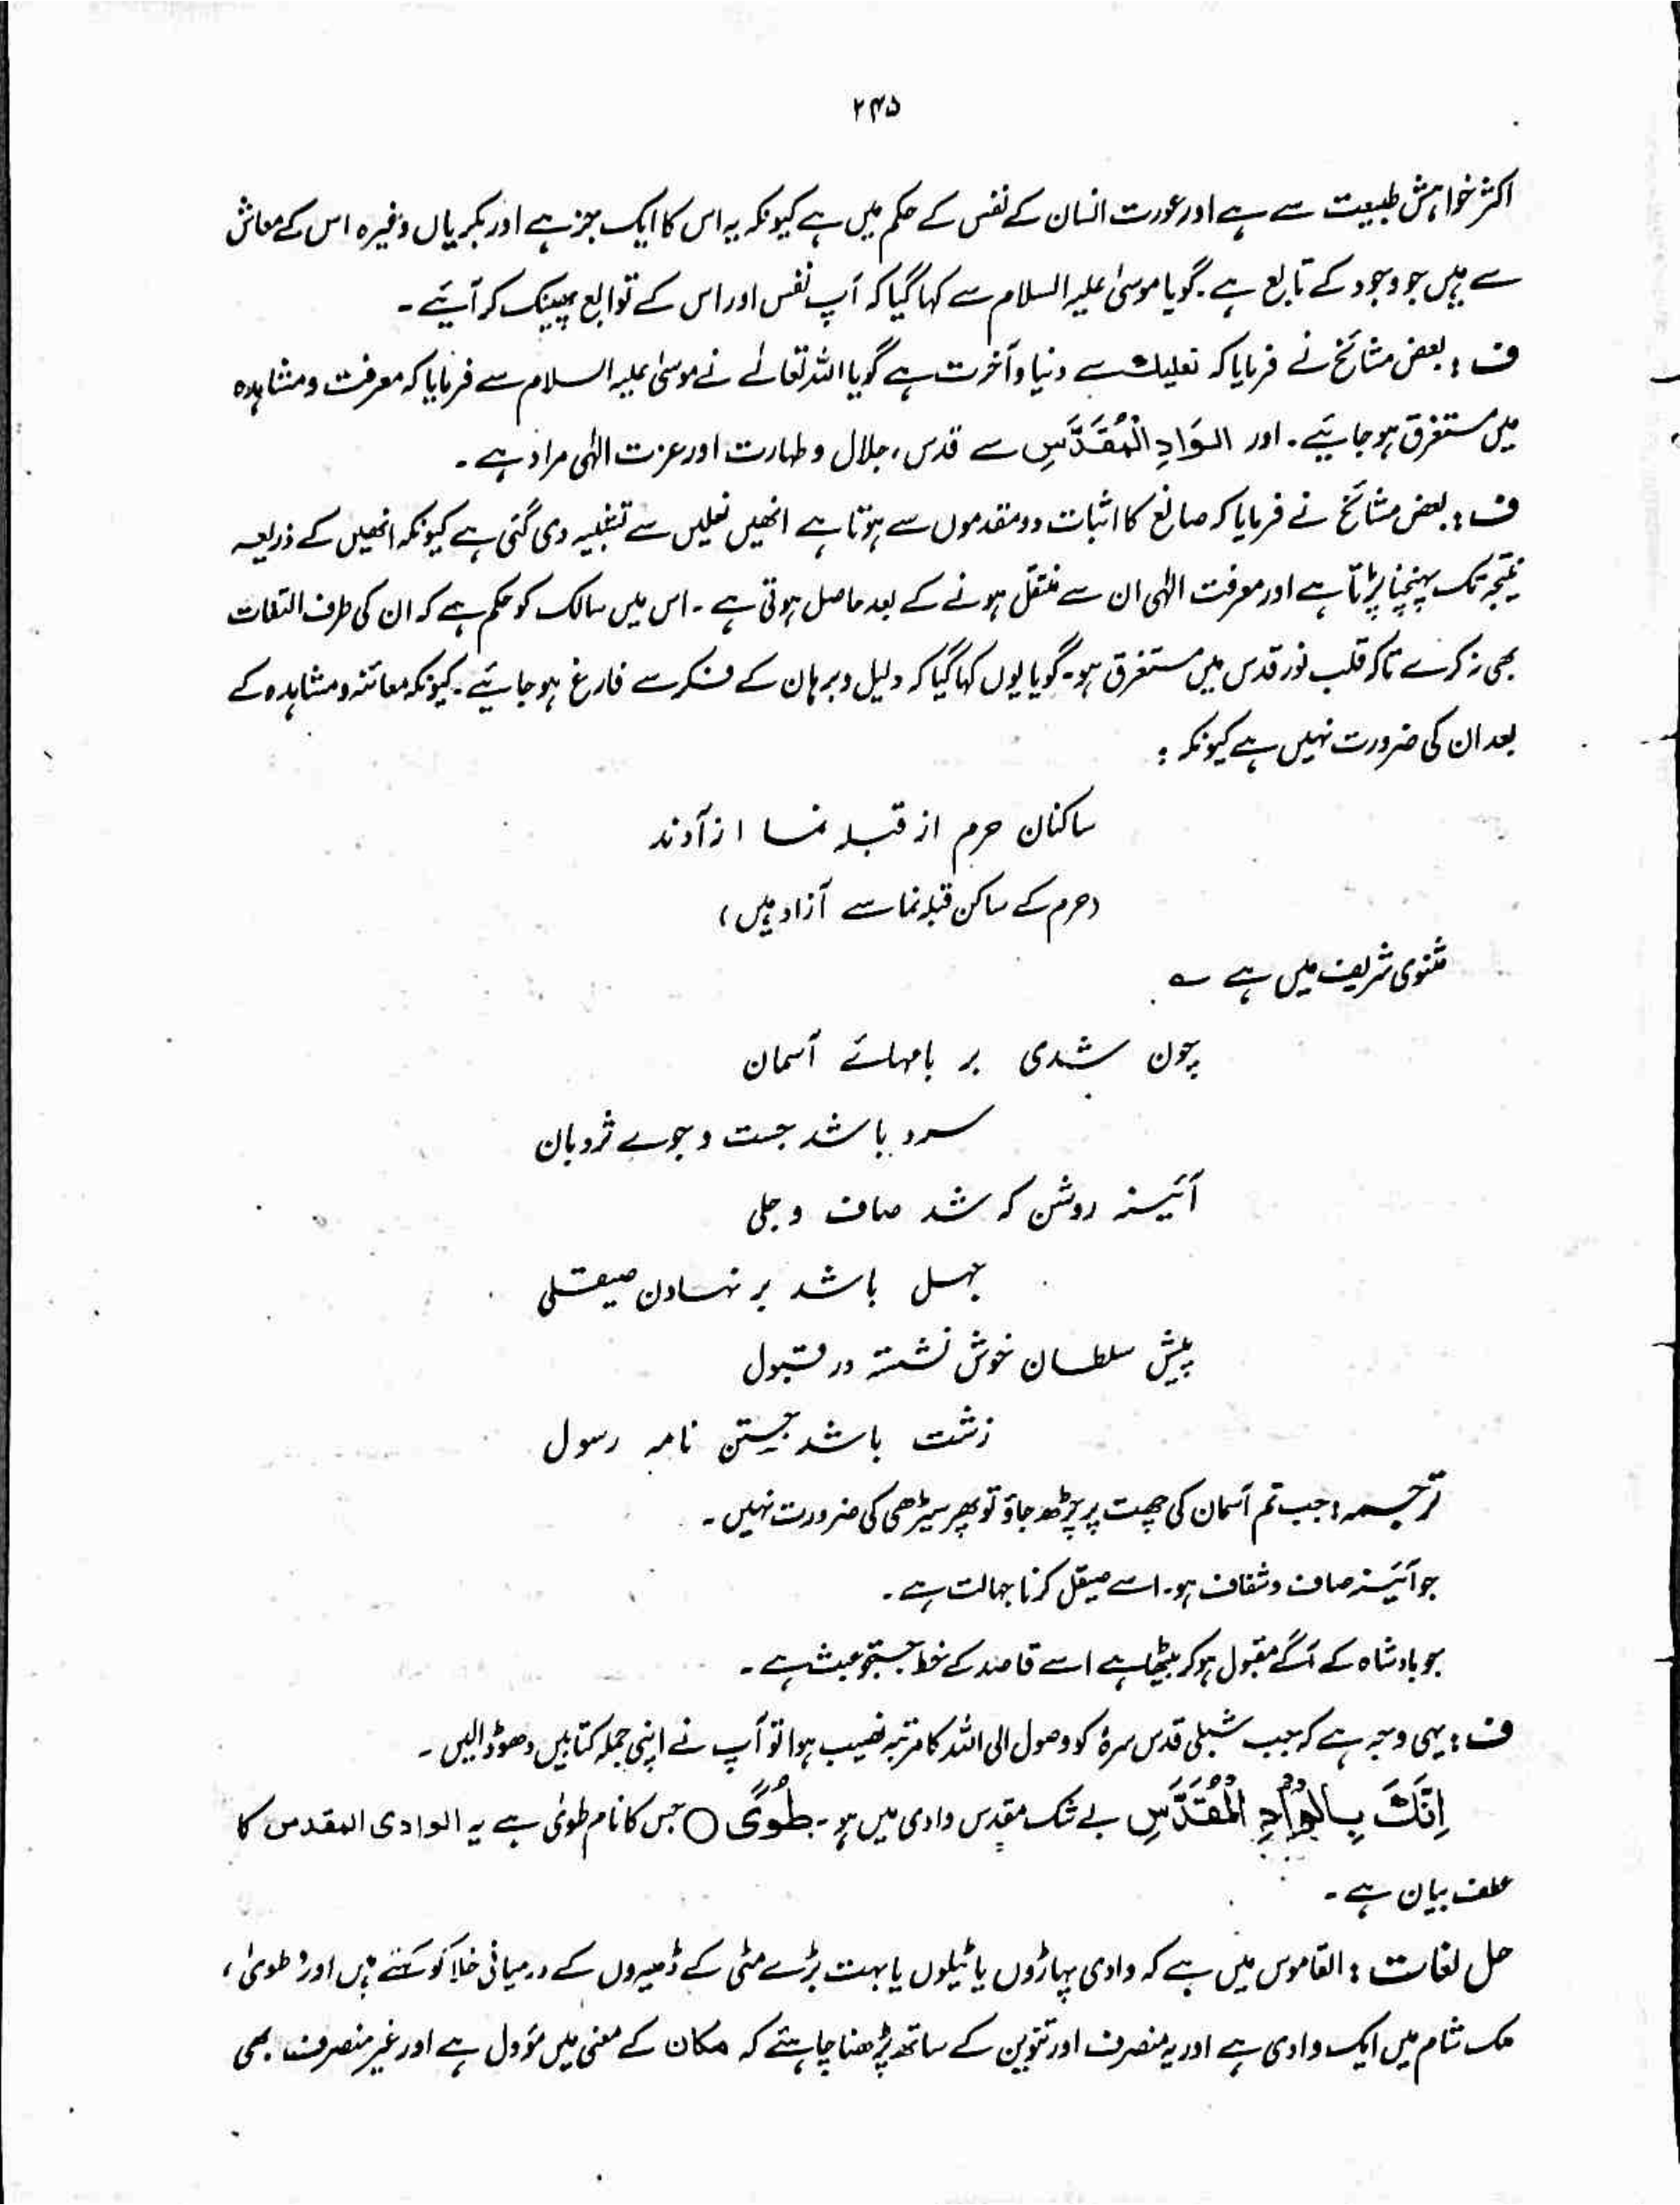 ۲۴۵
اکثر خواہش طبیعت سے ہے اور عورت انسان کے نفس کے حکم میں ہے کیونکہ یہ اس کا ایک جز ہے اور بکریاں وغیرہ اس کے معاش
سے ہیں جو وجود کے تابع ہے۔ گویا موسیٰ علیہ السلام سے کہا گیا کہ آپ نفس اور اس کے توابع پھینک کر آئیے ۔
ف : بعض مشائخ نے فرمایا کہ نعلیک سے دنیا و آخرت ہے گویا اللہ تعالےٰ نے موسیٰ علیہ السلام سے فرمایا کہ معرفت و مشاہدہ
میں مستغرق ہو جائیے ۔ اور الوَادِ الْمُقَدَّسِ سے قدس، جلال و طہارت اور عزت الٰہی مراد ہے ۔
ف : بعض مشائخ نے فرمایا کہ صانع کا اثبات دو مقدموں سے ہوتا ہے انھیں نعلین سے تشبیہ دی گئی ہے کیونکہ انھیں کے ذریعہ
نتیجہ تک پہنچنا پڑتا ہے اور معرفت الٰہی ان سے منتقل ہونے کے بعد حاصل ہوتی ہے ۔ اس میں سالک کو حکم ہے کہ ان کی طرف التفات
بھی نہ کرے تاکہ قلب نور قدس میں مستغرق ہو۔ گویا یوں کہا گیا کہ دلیل و برہان کے فکر سے فارغ ہو جائیے ۔ کیونکہ معائنہ و مشاہدہ کے
بعد ان کی ضرورت نہیں ہے کیونکہ :
ساکنان حرم از قبلہ نما ازآدند
(حرم کے ساکن قبلہ نما سے آزاد ہیں)
مثنوی شریف میں ہے ؎
چون شدی بر بامہائے آسمان
سرد باشد جست و جوے نردبان
آئینہ روشن کہ شد صاف و جلی
جہل باشد بر نہادن صیقلی
پیش سلطان خوش نشستہ در قبول
زشت باشد جستن نامہ رسول
ترجمہ : جب تم آسمان کی چھت پر چڑھ جاؤ تو پھر سیڑھی کی ضرورت نہیں ۔
جو آئینہ صاف و شفاف ہو۔ اسے صیقل کرنا جہالت ہے ۔
جو بادشاہ کے آگے مقبول ہو کر بیٹھا ہے اسے قاصد کے خط جستجو عبث ہے ۔
ف : یہی وجہ ہے کہ جب شبلی قدس سرہٗ کو وصول الی اللہ کا مرتبہ نصیب ہوا تو آپ نے اپنی جملہ کتابیں دھو ڈالیں ۔
اِنَّکَ بِالْوَادِ الْمُقَدَّسِ بے شک مقدس وادی میں ہو ۔ طُوًی ○ جس کا نام طویٰ ہے یہ الوادی المقدس کا
عطف بیان ہے ۔
حل لغات : القاموس میں ہے کہ وادی پہاڑوں یا ٹیلوں یا بہت بڑے مٹی کے ڈھیروں کے درمیانی خلا کو کہتے ہیں اور 'طویٰ'
ملک شام میں ایک وادی ہے اور یہ منصرف اور تنوین کے ساتھ پڑھنا چاہئے کہ مکان کے معنی میں مؤول ہے اور غیر منصرف بھی